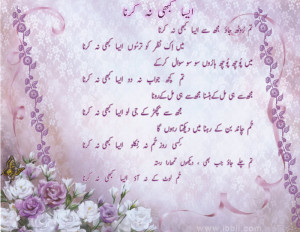 ایسا کبھی نہ کرنا
تم روٹھ جاؤ مجھ سے ایسا کبھی نہ کرنا
میں اک نظر کو ترسوں ایسا کبھی نہ کرنا
میں پوچھ پوچھ ہاروں سو سو سوال کر کے
تم کچھ جواب نہ دو ایسا کبھی نہ کرنا
مجھ سے ہی مل کے ہنسنا مجھ سے ہی مل کے رونا
مجھ سے بچھڑ کے جی لو ایسا کبھی نہ کرنا
تم چاند بن کے رہنا میں دیکھتا رہوں گا
کسی روز تم نہ نکلو ایسا کبھی نہ کرنا
تم چلے جاؤ جب بھی ، دیکھوں تمھارا رستہ
تم لوٹ کے نہ آؤ ایسا کبھی نہ کرنا